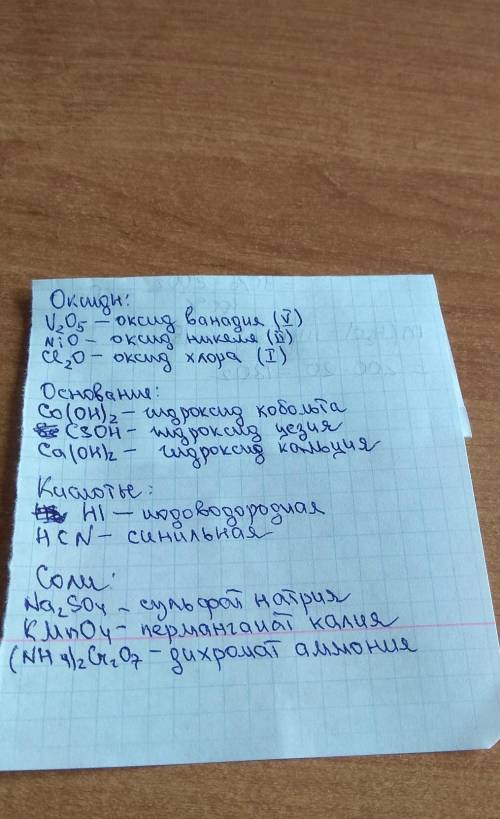 Оксиды:
V₂O₅ – оксид ванадия (V)
NiO – оксид никеля (II)
Cl₂O – оксид хлора (I)
Основание:
Co(OH)₂ – гидроксид кобольта
CsOH – гидроксид цезия
Ca(OH)₂ – гидроксид кальция
Кислоты:
HI – иодоводородная
HCN – синильная
Соли:
Na₂SO₄ – сульфат натрия
KMnO₄ – перманганат калия
(NH₄)₂Cr₂O₇ – дихромат аммония